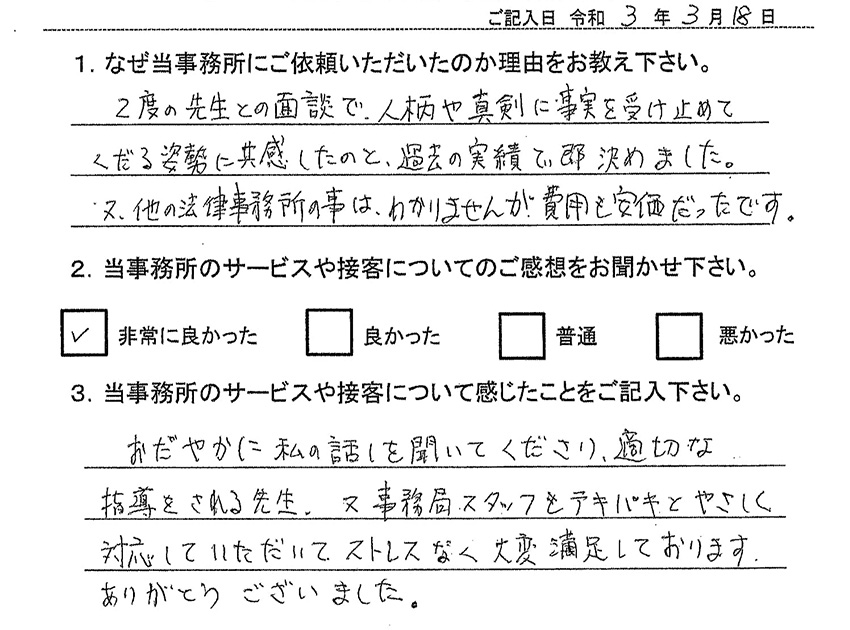 ご記入日 令和 3 年 3 月 18 日
1. なぜ当事務所にご依頼いただいたのか理由をお教え下さい。
2度の先生との面談で、人柄や真剣に事実を受け止めて
くだる姿勢に共感したのと、過去の実績で、即決めました。
又、他の法律事務所の事は、わかりませんが、費用も安価だったです。
2. 当事務所のサービスや接客についてのご感想をお聞かせ下さい。
✓ 非常に良かった 良かった 普通 悪かった
3. 当事務所のサービスや接客について感じたことをご記入下さい。
おだやかに私の話しを聞いてくださり、適切な
指導をされる先生、又事務局スタッフもテキパキとやさしく
対応していただいて、ストレスなく大変満足しております。
ありがとうございました。